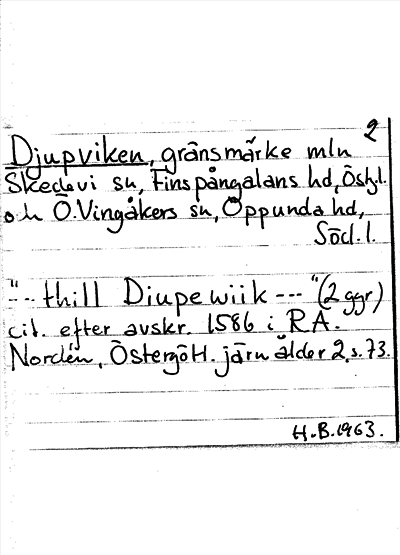 2
Djupviken, gränsmärke mln
Skedevi sn, Finspångalans hd, Östg.l.
och Ö.Vingåkers sn, Oppunda hd,
Söd.l.
"-- thill Diupewiik ---" (2 ggr)
cit. efter avskr. 1586 i RA.
Nordén, Östergötl. järnålder 2, s.73.
H.B.1963.